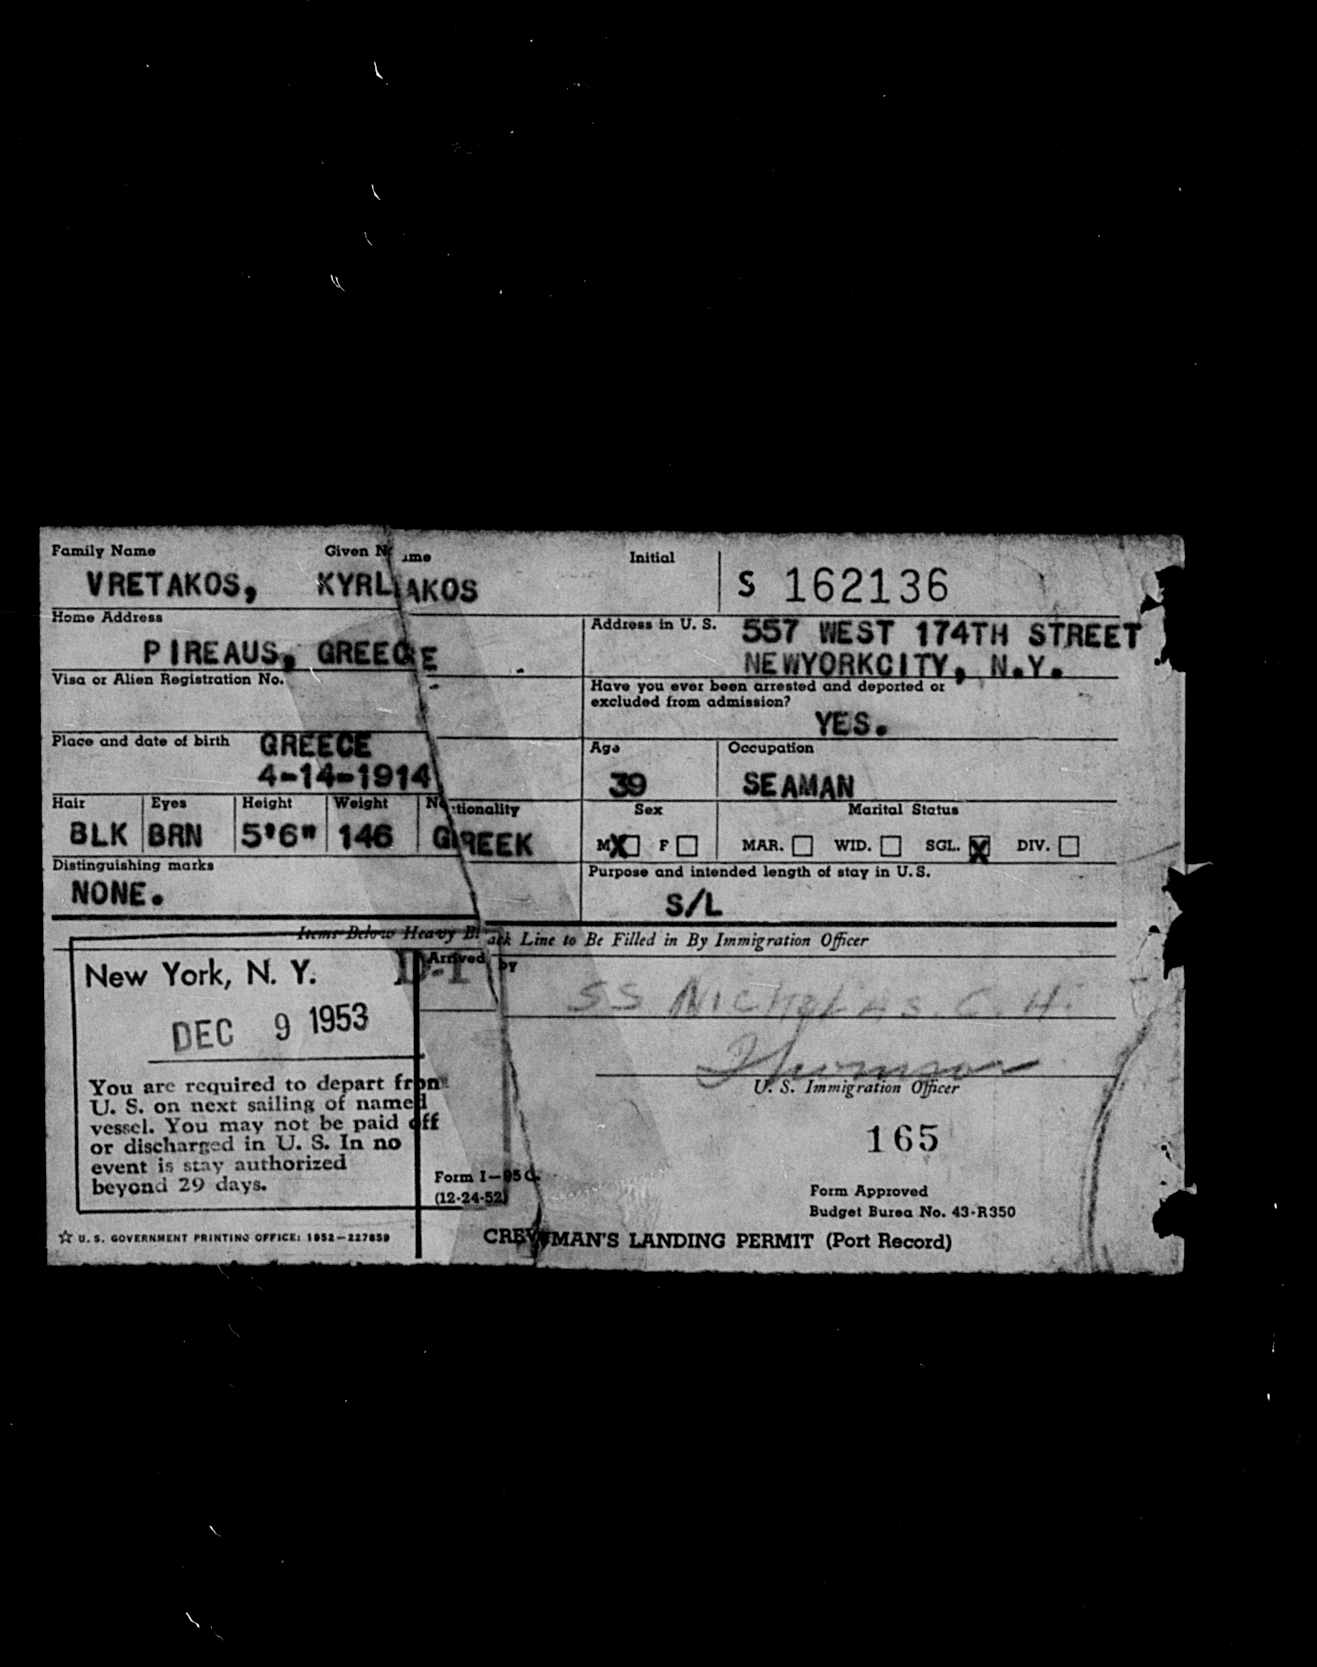 Family Name Given Name Initial
VRETAKOS, KYRLIAKOS S 162136
Home Address
PIREAUS, GREECE
Address in U. S. 557 WEST 174TH STREET
NEWYORKCITY, N.Y.
Visa or Alien Registration No.
Have you ever been arrested and deported or
excluded from admission?
YES.
Place and date of birth GREECE
4-14-1914
Age Occupation
39 SEAMAN
Hair Eyes Height Weight Nationality
BLK BRN 5'6" 146 GREEK
Sex Marital Status
M X F MAR. WID. SGL. X DIV.
Distinguishing marks
NONE.
Purpose and intended length of stay in U. S.
S/L
Items Below Heavy Black Line to Be Filled in By Immigration Officer
New York, N. Y.
D-1
DEC 9 1953
You are required to depart from
U. S. on next sailing of named
vessel. You may not be paid off
or discharged in U. S. In no
event is stay authorized
beyond 29 days.
Arrived by
SS NICHOLAS. C. H.
U. S. Immigration Officer
165
Form I-95C
(12-24-52)
Form Approved
Budget Burea No. 43-R350
☆ U. S. GOVERNMENT PRINTING OFFICE: 1952—227859
CREWMAN'S LANDING PERMIT (Port Record)